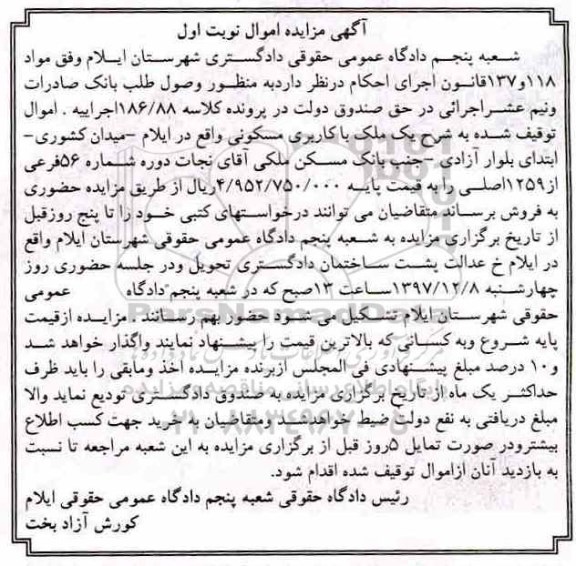 آگهی مزایده اموال نوبت اول
شعبه پنجم دادگاه عمومی حقوقی دادگستری شهرستان ایلام وفق مواد
۱۱۸و۱۳۷قانون اجرای احکام درنظر داردبه منظور وصول طلب بانک صادرات
ونیم عشراجرائی در حق صندوق دولت در پرونده کلاسه ۱۸۶/۸۸اجراییه . اموال
توقیف شده به شرح یک ملک باکاربری مسکونی واقع در ایلام –میدان کشوری–
ابتدای بلوار آزادی –جنب بانک مسکن ملکی آقای نجات دوره شماره ۵۶فرعی
از۱۲۵۹اصلی را به قیمت پایه ۴/۹۵۲/۷۵۰/۰۰۰ریال از طریق مزایده حضوری
به فروش برساند متقاضیان می توانند درخواستهای کتبی خود را تا پنج روزقبل
از تاریخ برگزاری مزایده به شعبه پنجم دادگاه عمومی حقوقی شهرستان ایلام واقع
در ایلام خ عدالت پشت ساختمان دادگستری تحویل ودر جلسه حضوری روز
چهارشنبه ۱۳۹۷/۱۲/۸ساعت ۱۳صبح که در شعبه پنجم دادگاه عمومی
حقوقی شهرستان ایلام تشکیل می شود حضور بهم رسانند . مزایده ازقیمت
پایه شروع وبه کسانی که بالاترین قیمت را پیشنهاد نمایند واگذار خواهد شد
و۱۰ درصد مبلغ پیشنهادی فی المجلس ازبرنده مزایده اخذ ومابقی را باید ظرف
حداکثر یک ماه از تاریخ برگزاری مزایده به صندوق دادگستری تودیع نماید والا
مبلغ دریافتی به نفع دولت ضبط خواهدشد ومتقاضیان به خرید جهت کسب اطلاع
بیشترودر صورت تمایل ۵روز قبل از برگزاری مزایده به این شعبه مراجعه تا نسبت
به بازدید آنان ازاموال توقیف شده اقدام شود.
رئیس دادگاه حقوقی شعبه پنجم دادگاه عمومی حقوقی ایلام
کورش آزاد بخت
ParsNamadData
پایگاه اطلاع رسانی مناقصه و مزایده
۰۲۱-۸۸۳۴۹۶۷۰-۵